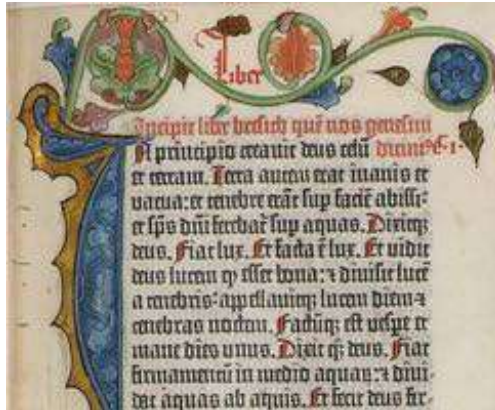 Liber
Incipit liber bresich quē nos genesim
In principio creavit deus celū dicim⁹ C·1·
et terram. Terra autem erat inanis et
vacua: et tenebre erāt sup faciē abissi:
et spūs dñi ferebat̄ sup aquas. Dixitq;
deus. Fiat lux. Et facta ē lux. Et vidit
deus lucem q esset bona: ⁊ divisit lucē
a tenebris· appellavitq; lucem diem ⁊
tenebras noctem. Factūq; est vespe et
mane dies unus. Dixit q; deus. Fiat
firmamentū in medio aquar̄: ⁊ divi-
dat aquas ab aquis. Et fecit deus fir-